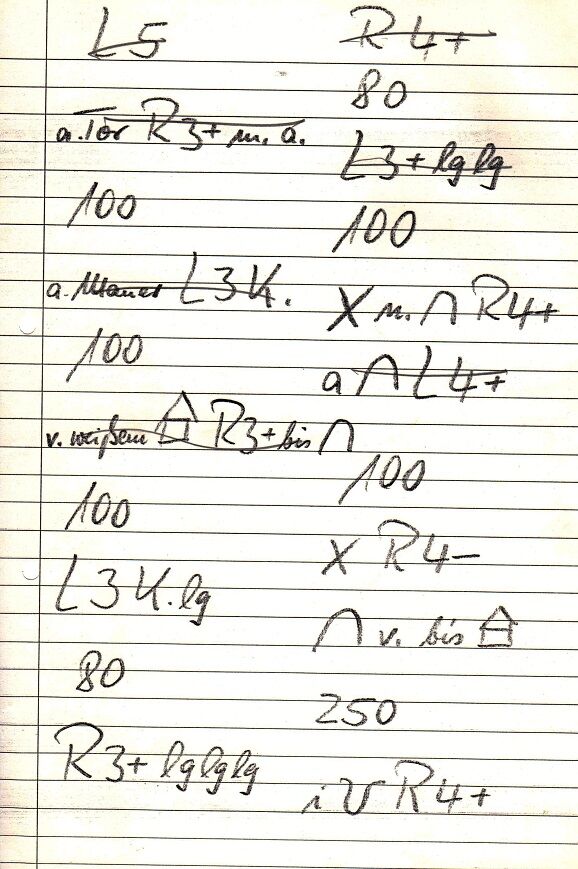 L5
a. Tor R3+ m. a.
100
a. Mauer L3K.
100
v. weißem R3+ bis ∩
100
L3K.lg
80
R3+ lglglg
R4+
80
L3+ lglg
100
X m. ∩ R4+
a ∩ L4+
100
X R4-
∩ v. bis
250
i R4+